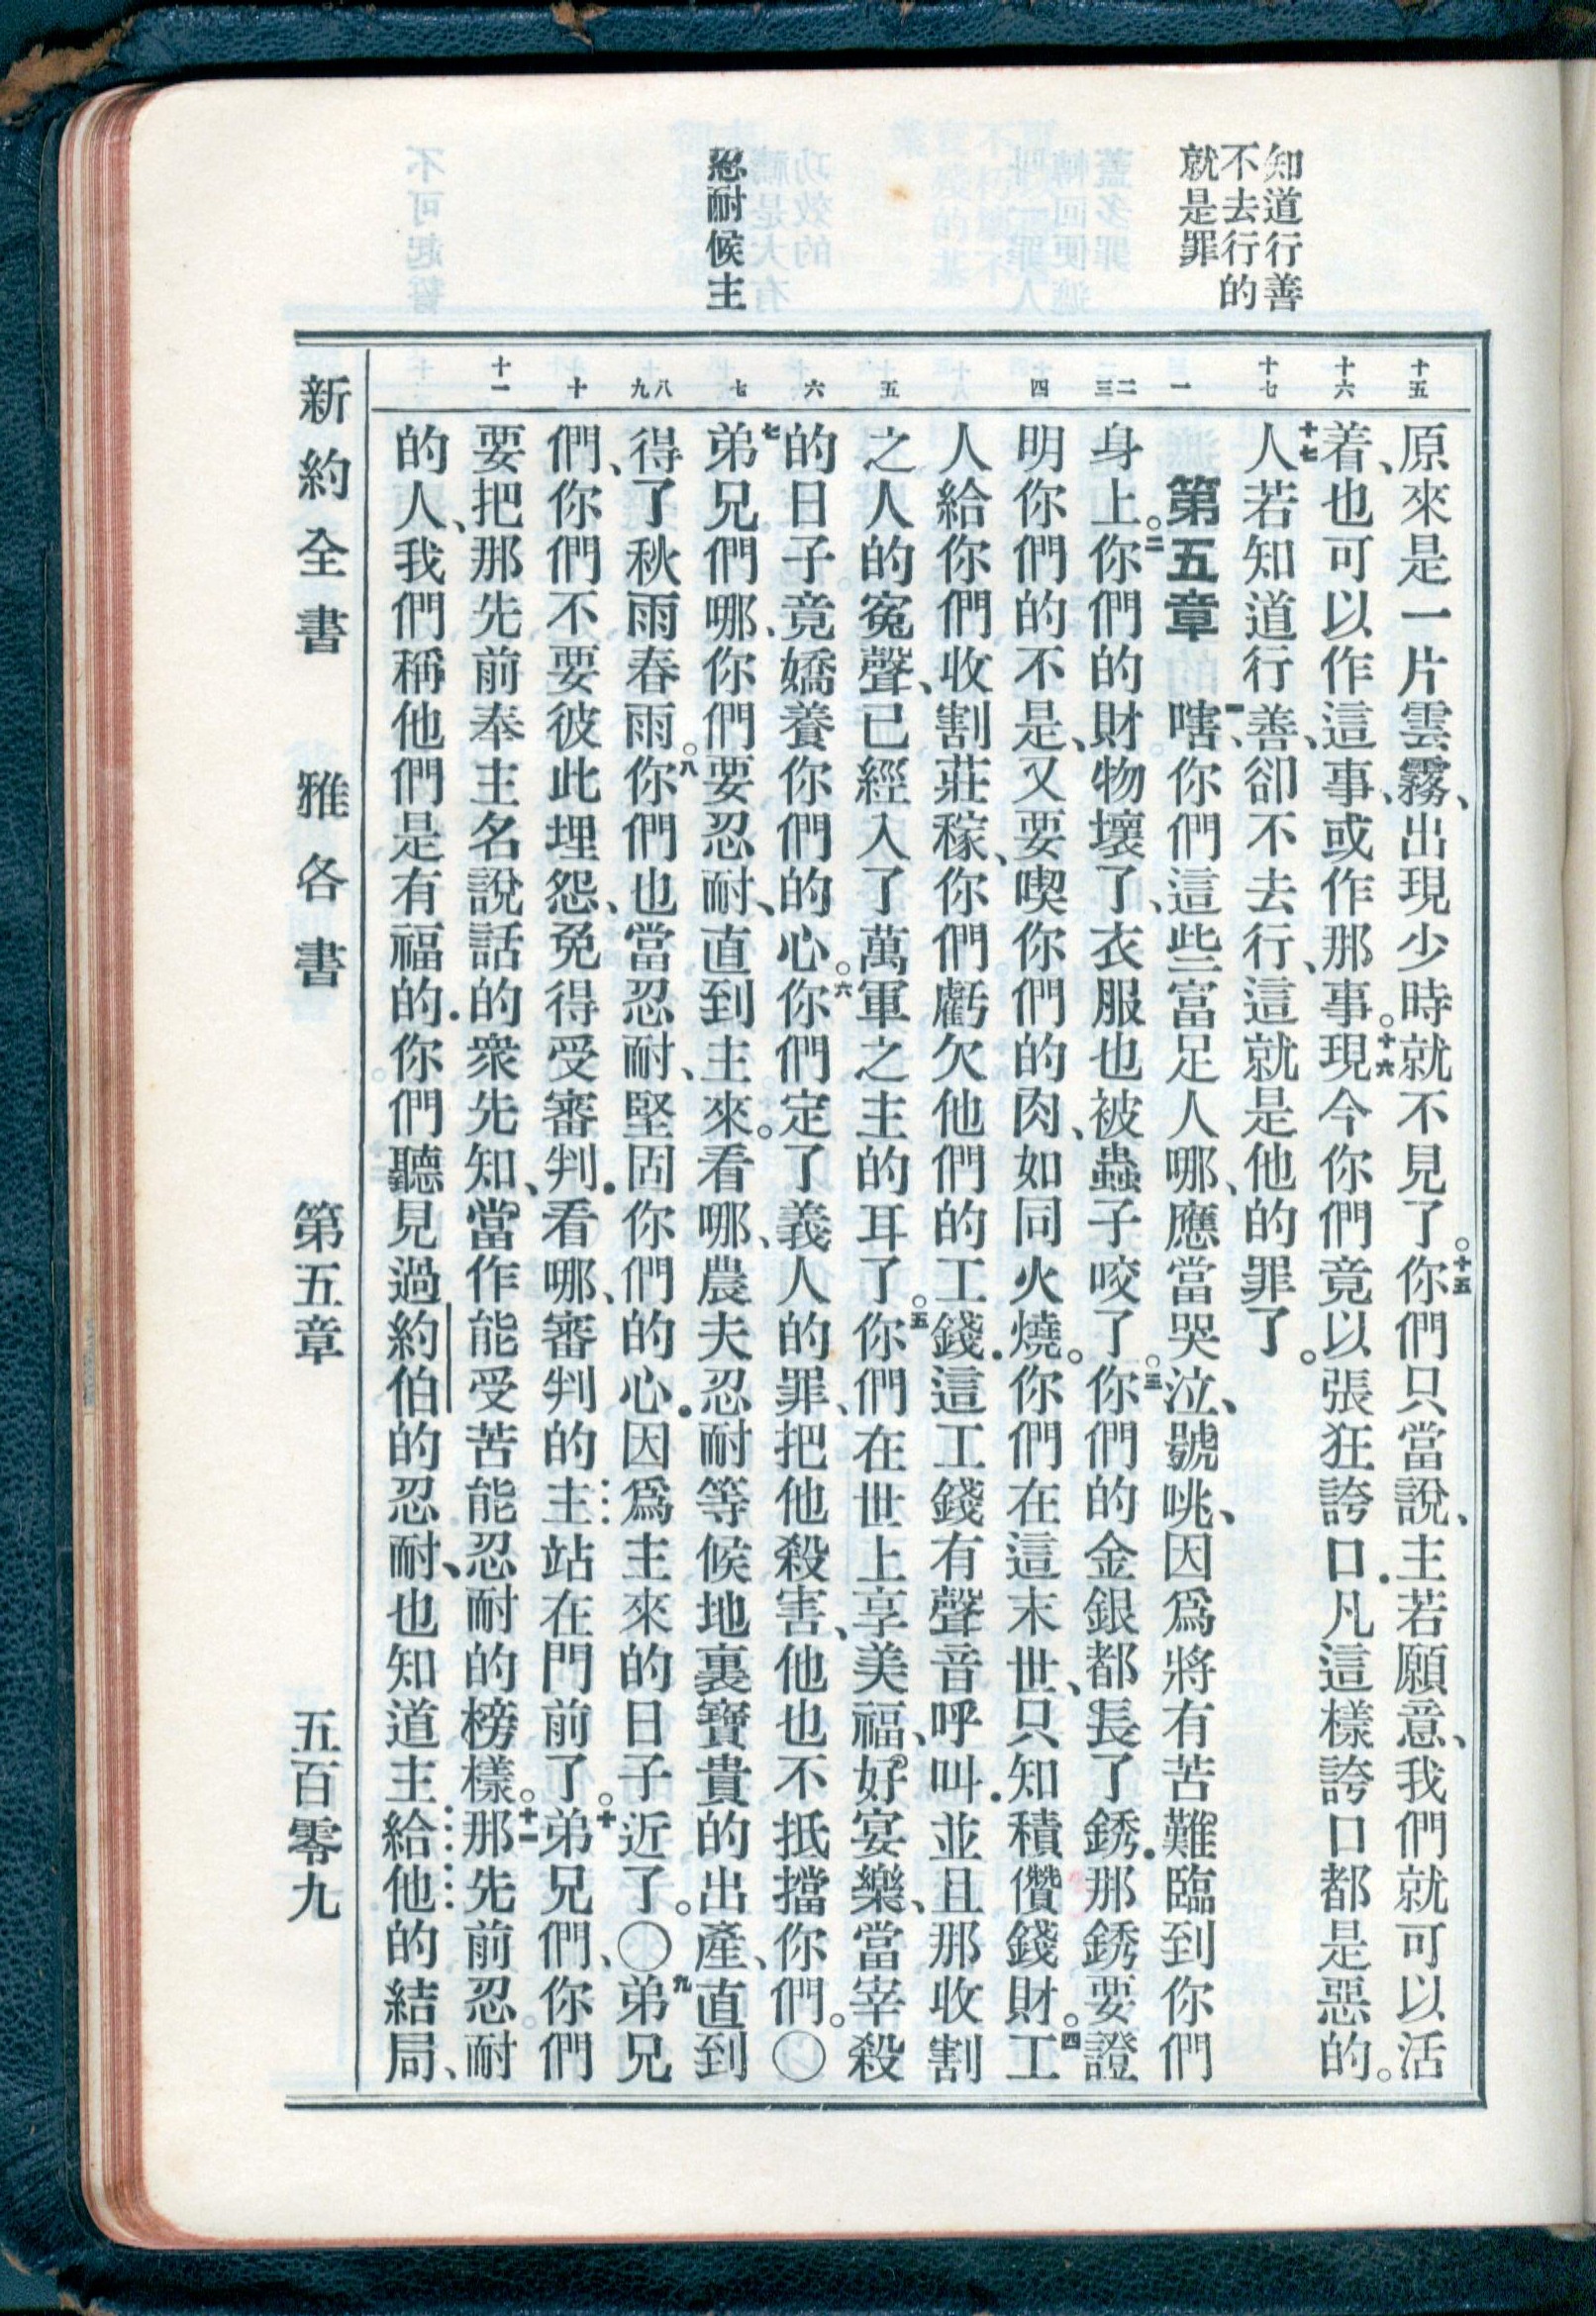 知道行善
不去行的
就是罪
忍耐候主
十五
十六
十七
一
二
三
四
五
六
七
八
九
十
十一
原來是一片雲霧、出現少時就不見了。十五你們只當說、主若願意、我們就可以活
着、也可以作這事、或作那事。十六現今你們竟以張狂誇口．凡這樣誇口都是惡的。
十七人若知道行善、卻不去行、這就是他的罪了。
第五章 一嗐、你們這些富足人哪、應當哭泣、號咷、因爲將有苦難臨到你們
身上。二你們的財物壞了、衣服也被蟲子咬了。三你們的金銀都長了銹．那銹要證
明你們的不是、又要喫你們的肉、如同火燒。你們在這末世、只知積儹錢財。四工
人給你們收割莊稼、你們虧欠他們的工錢．這工錢有聲音呼叫．並且那收割
之人的寃聲、已經入了萬軍之主的耳了。五你們在世上享美福、好宴樂、當宰殺
的日子竟嬌養你們的心。六你們定了義人的罪、把他殺害、他也不抵擋你們。〇
七弟兄們哪、你們要忍耐、直到主來。看哪、農夫忍耐等候地裏寶貴的出產、直到
得了秋雨春雨。八你們也當忍耐、堅固你們的心．因爲主來的日子近了。〇九弟兄
們、你們不要彼此埋怨、免得受審判．看哪、審判的主站在門前了。十弟兄們、你們
要把那先前奉主名說話的衆先知、當作能受苦能忍耐的榜樣。十一那先前忍耐
的人、我們稱他們是有福的．你們聽見過約伯的忍耐、也知道主給他的結局、
新約全書 雅各書 第五章 五百零九